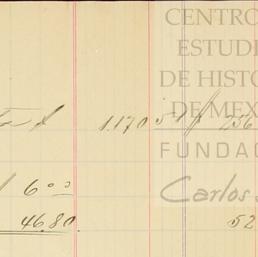 CENTRO
ESTUDI
DE HISTO
DE MEX
FUNDAC
Carlos
$ 1.170 51 $ 256
6 00
46.80
52